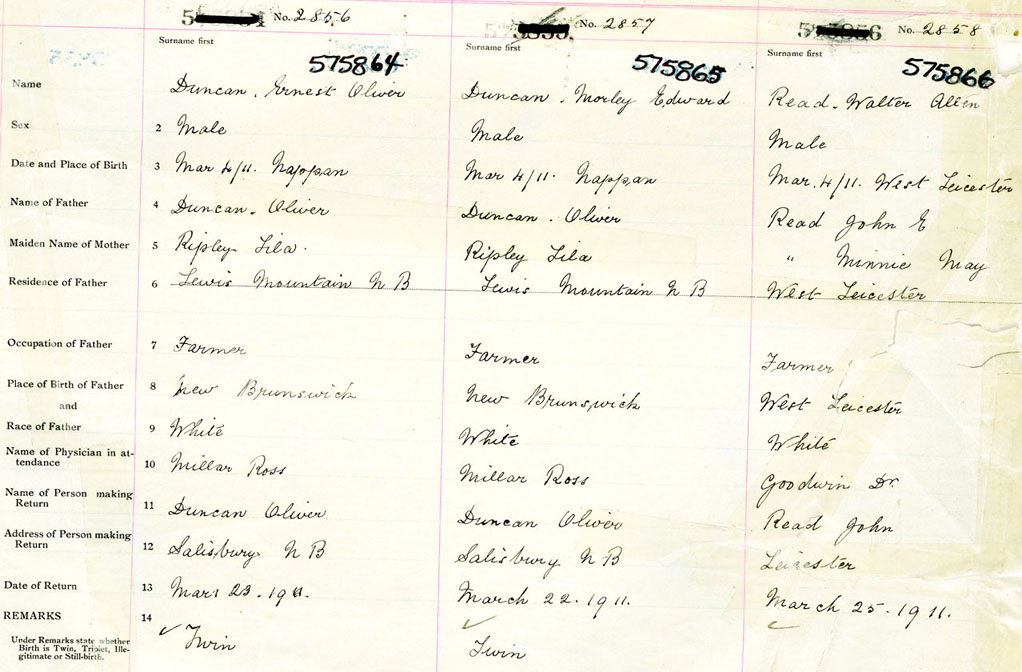 No. 2856 No. 2857 No. 2858
Surname first Surname first Surname first
575864 575865 575866
Name Duncan, Ernest Oliver Duncan, Morley Edward Read, Walter Allen
Sex 2 Male Male Male
Date and Place of Birth 3 Mar 4/11. Nappan Mar 4/11. Nappan Mar. 4/11. West Leicester
Name of Father 4 Duncan, Oliver Duncan, Oliver Read John E
Maiden Name of Mother 5 Ripley Lila. Ripley Lila " Minnie May
Residence of Father 6 Lewis Mountain N B Lewis Mountain N B West Leicester
Occupation of Father 7 Farmer Farmer Farmer
Place of Birth of Father 8 New Brunswick New Brunswick West Leicester
and
Race of Father 9 White White White
Name of Physician in at-
tendance 10 Millar Ross Millar Ross Goodwin Dr.
Name of Person making
Return 11 Duncan Oliver Duncan Oliver Read John
Address of Person making
Return 12 Salisbury N B Salisbury N B Leicester
Date of Return 13 23. 1911. March 22. 1911. March 25. 1911.
REMARKS 14
Under Remarks state whether
Birth is Twin, Triplet, Ille-
gitimate or Still-birth.
✓ Twin ✓ Twin ✓